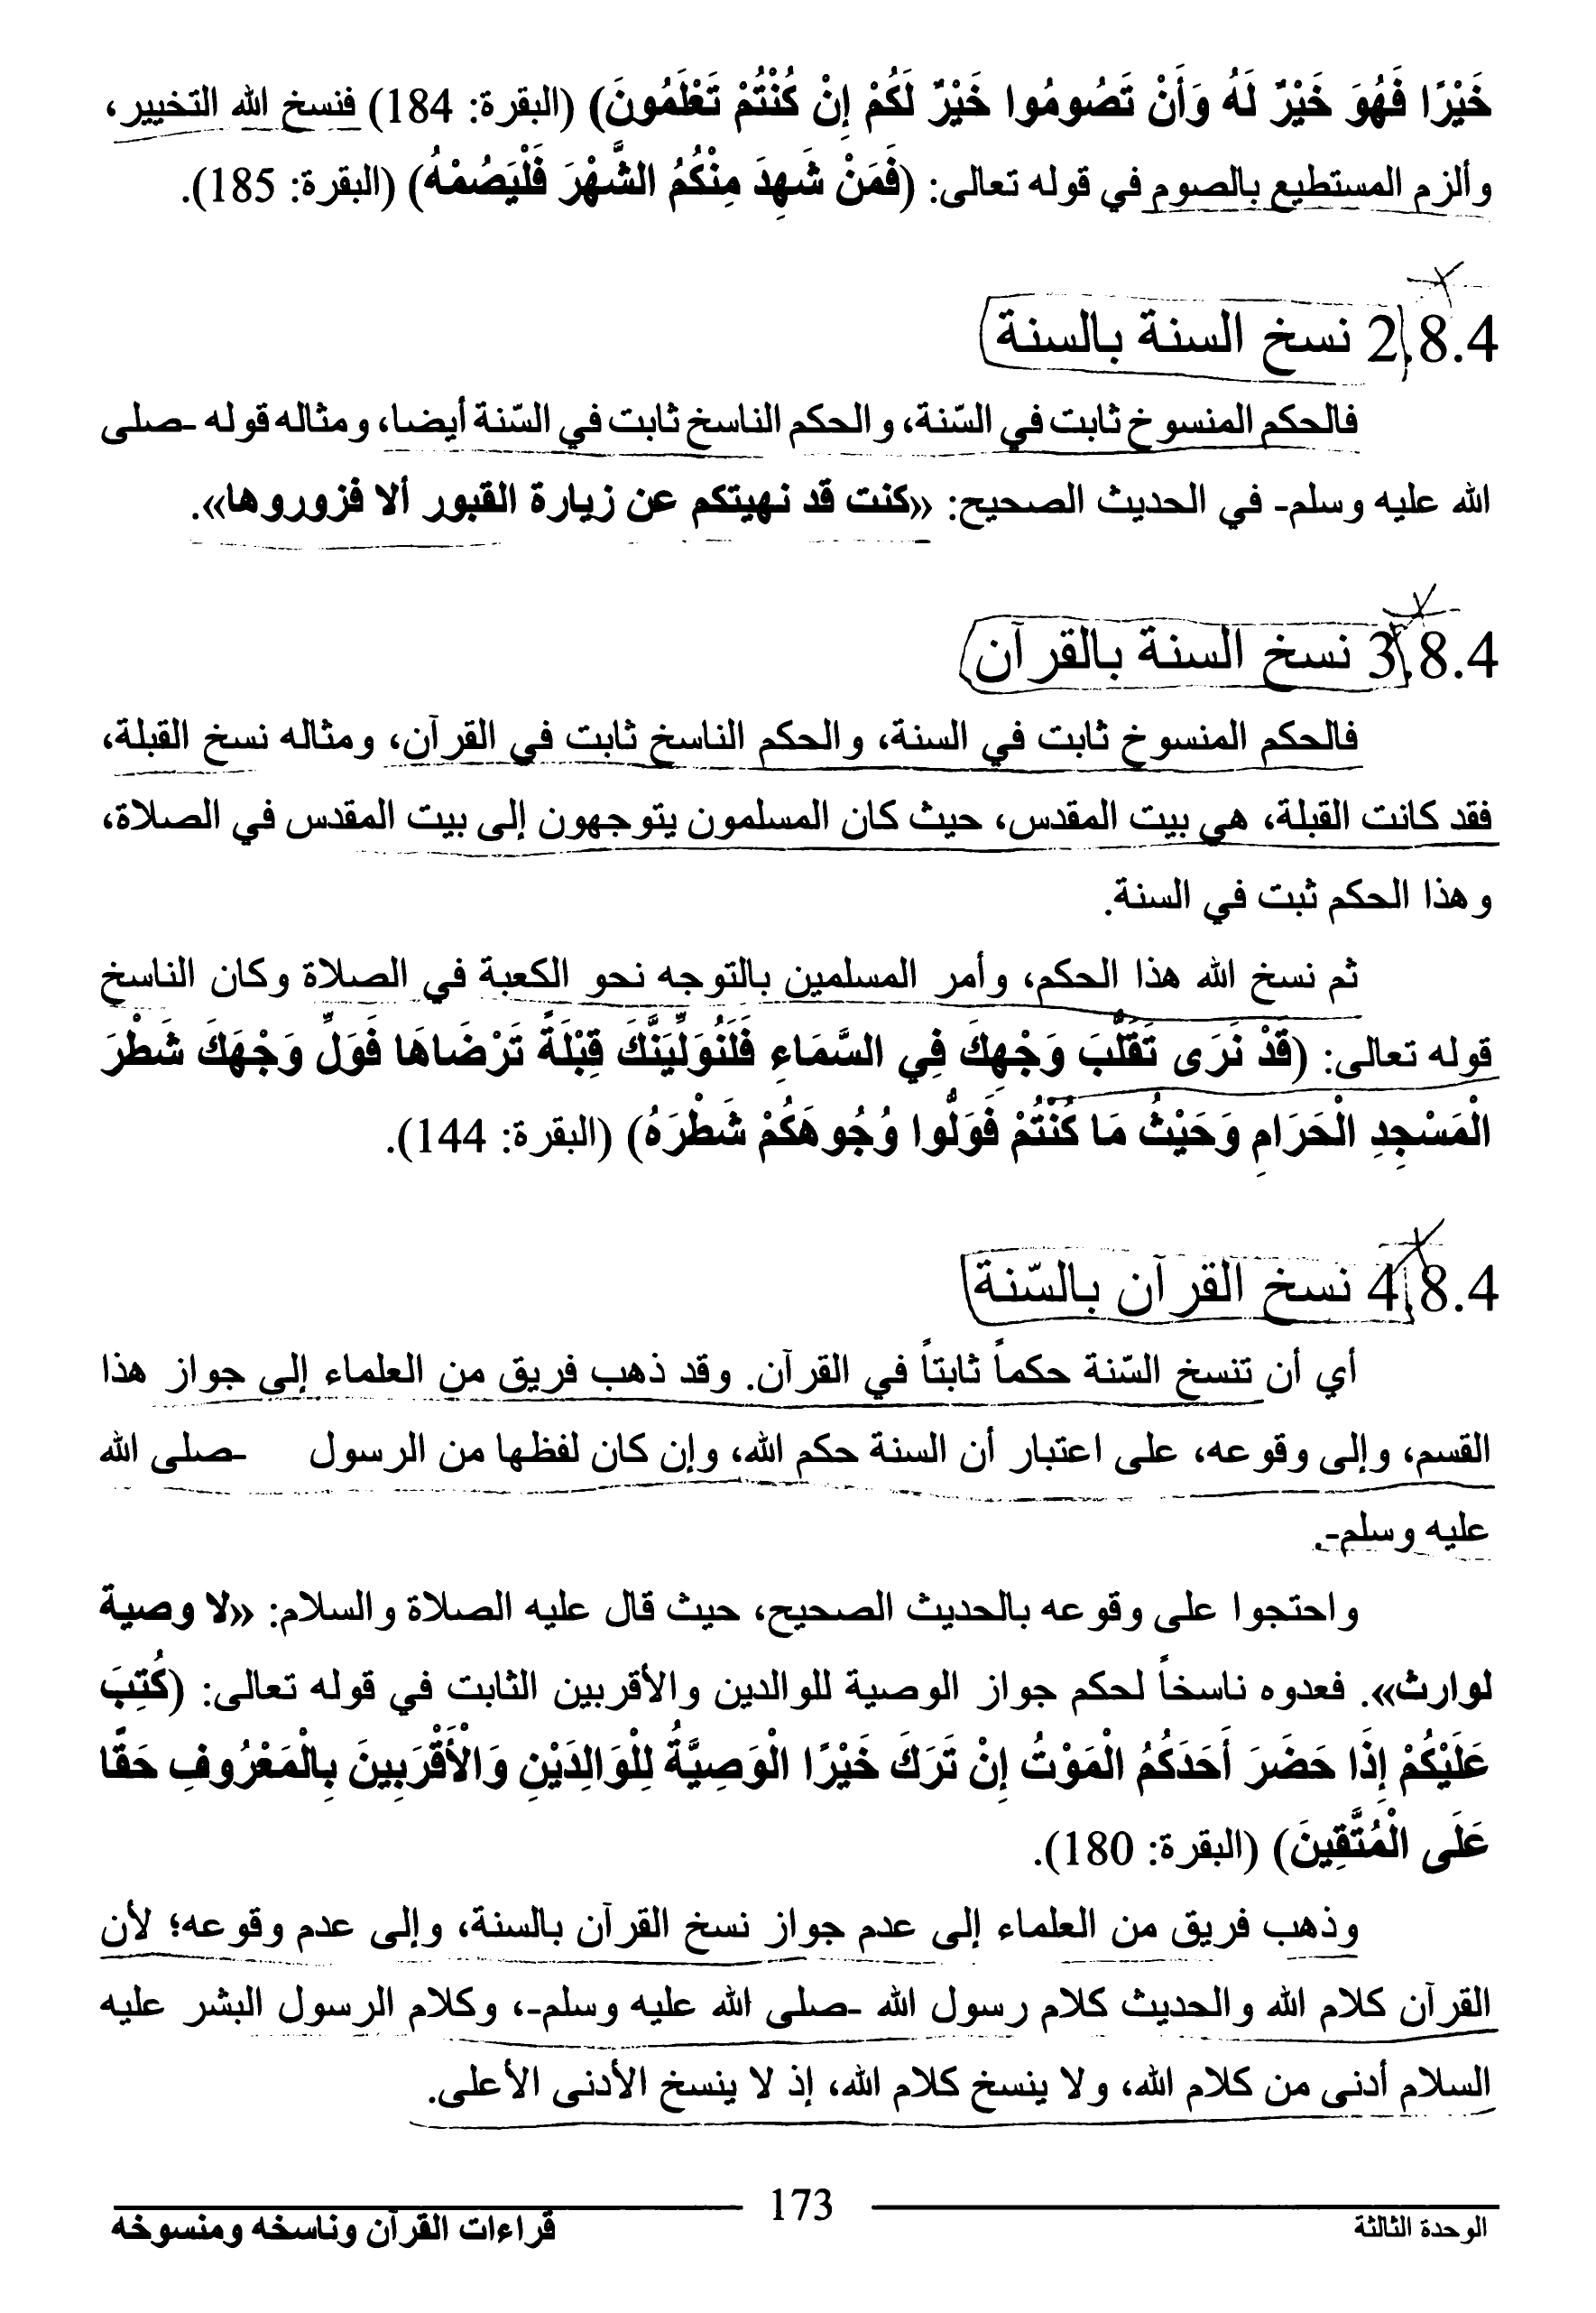 خَيْرًا فَهُوَ خَيْرٌ لَهُ وَأَنْ تَصُومُوا خَيْرٌ لَكُمْ إِنْ كُنْتُمْ تَعْلَمُونَ) (البقرة: 184) فنسخ الله التخيير،
وألزم المستطيع بالصوم في قوله تعالى: (فَمَنْ شَهِدَ مِنْكُمُ الشَّهْرَ فَلْيَصُمْهُ) (البقرة: 185).
2.8.4 نسخ السنة بالسنة
فالحكم المنسوخ ثابت في السّنة، والحكم الناسخ ثابت في السّنة أيضا، ومثاله قوله -صلى
الله عليه وسلم- في الحديث الصحيح: «كنت قد نهيتكم عن زيارة القبور ألا فزوروها».
3.8.4 نسخ السنة بالقرآن
فالحكم المنسوخ ثابت في السنة، والحكم الناسخ ثابت في القرآن، ومثاله نسخ القبلة،
فقد كانت القبلة، هي بيت المقدس، حيث كان المسلمون يتوجهون إلى بيت المقدس في الصلاة،
وهذا الحكم ثبت في السنة.
ثم نسخ الله هذا الحكم، وأمر المسلمين بالتوجه نحو الكعبة في الصلاة وكان الناسخ
قوله تعالى: (قَدْ نَرَى تَقَلُّبَ وَجْهِكَ فِي السَّمَاءِ فَلَنُوَلِّيَنَّكَ قِبْلَةً تَرْضَاهَا فَوَلِّ وَجْهَكَ شَطْرَ
الْمَسْجِدِ الْحَرَامِ وَحَيْثُ مَا كُنْتُمْ فَوَلُّوا وُجُوهَكُمْ شَطْرَهُ) (البقرة: 144).
4.8.4 نسخ القرآن بالسّنة
أي أن تنسخ السّنة حكماً ثابتاً في القرآن. وقد ذهب فريق من العلماء إلى جواز هذا
القسم، وإلى وقوعه، على اعتبار أن السنة حكم الله، وإن كان لفظها من الرسول -صلى الله
عليه وسلم-.
واحتجوا على وقوعه بالحديث الصحيح، حيث قال عليه الصلاة والسلام: «لا وصية
لوارث». فعدوه ناسخاً لحكم جواز الوصية للوالدين والأقربين الثابت في قوله تعالى: (كُتِبَ
عَلَيْكُمْ إِذَا حَضَرَ أَحَدَكُمُ الْمَوْتُ إِنْ تَرَكَ خَيْرًا الْوَصِيَّةُ لِلْوَالِدَيْنِ وَالْأَقْرَبِينَ بِالْمَعْرُوفِ حَقًّا
عَلَى الْمُتَّقِينَ) (البقرة: 180).
وذهب فريق من العلماء إلى عدم جواز نسخ القرآن بالسنة، وإلى عدم وقوعه؛ لأن
القرآن كلام الله والحديث كلام رسول الله -صلى الله عليه وسلم-، وكلام الرسول البشر عليه
السلام أدنى من كلام الله، ولا ينسخ كلام الله، إذ لا ينسخ الأدنى الأعلى.
173
الوحدة الثالثة
قراءات القرآن وناسخه ومنسوخه